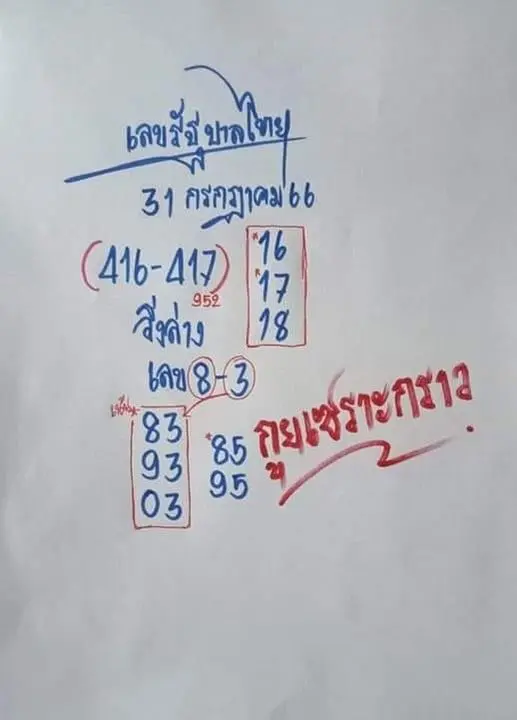 เลขรัฐบาลไทย
31 กรกฎาคม 66
(416-417)
952
16
17
18
วิ่งล่าง
เลข 8-3
83
93
03
85
95
กูยเซราะกราว